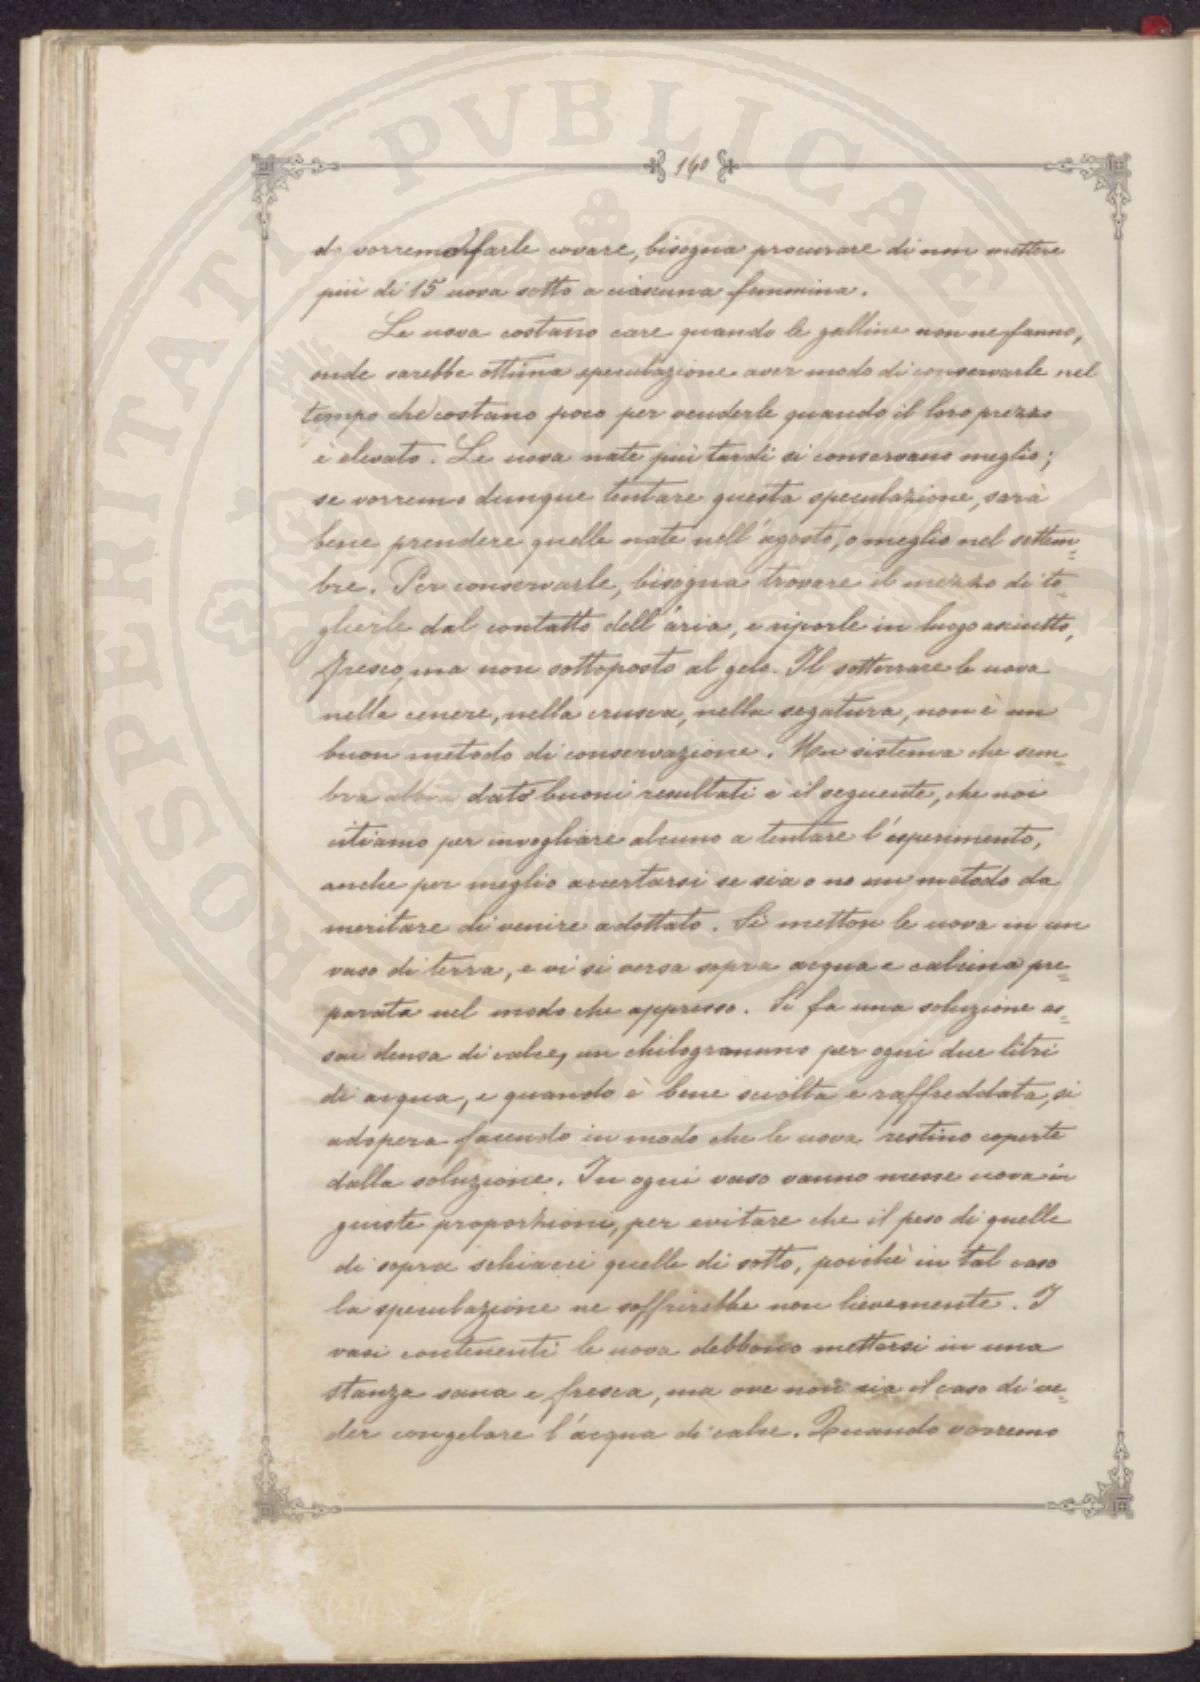 140
do vorremo farle covare, bisogna procurare di non mettere
più di 15 uova sotto a ciascuna femmina.
Le uova costano care quando le galline non ne fanno,
onde sarebbe ottima speculazione aver modo di conservarle nel
tempo che costano poco per venderle quando il loro prezzo
è elevato. Le uova nate più tardi si conservano meglio;
se vorremo dunque tentare questa speculazione, sarà
bene prendere quelle nate nell'agosto, o meglio nel settem=
bre. Per conservarle, bisogna trovare il mezzo di to=
glierle dal contatto dell'aria, e riporle in luogo asciutto,
fresco, ma non sottoposto al gelo. Il sotterrare le uova
nella cenere, nella crusca, nella segatura, non è un
buon metodo di conservazione. Un sistema che sem=
bra abbia dato buoni resultati è il seguente, che noi
citiamo per invogliare alcuno a tentare l'esperimento,
anche per meglio accertarsi se sia o no un metodo da
meritare di venire adottato. Si metton le uova in un
vaso di terra, e vi si versa sopra acqua e calcina pre=
parata nel modo che appresso. Si fa una soluzione as=
sai densa di calce, un chilogrammo per ogni due litri
di acqua, e quando è bene sciolta e raffreddata, si
adopera facendo in modo che le uova restino coperte
dalla soluzione. In ogni vaso vanno messe uova in
guiste proporzioni, per evitare che il peso di quelle
di sopra schiacci quelle di sotto, poichè in tal caso
la speculazione ne soffrirebbe non lievemente. I
vasi contenenti le uova debbono mettersi in una
stanza sana e fresca, ma ove non sia il caso di ve=
der congelare l'acqua di calce. Quando vorremo
PROSPERITATI PVBLICAE